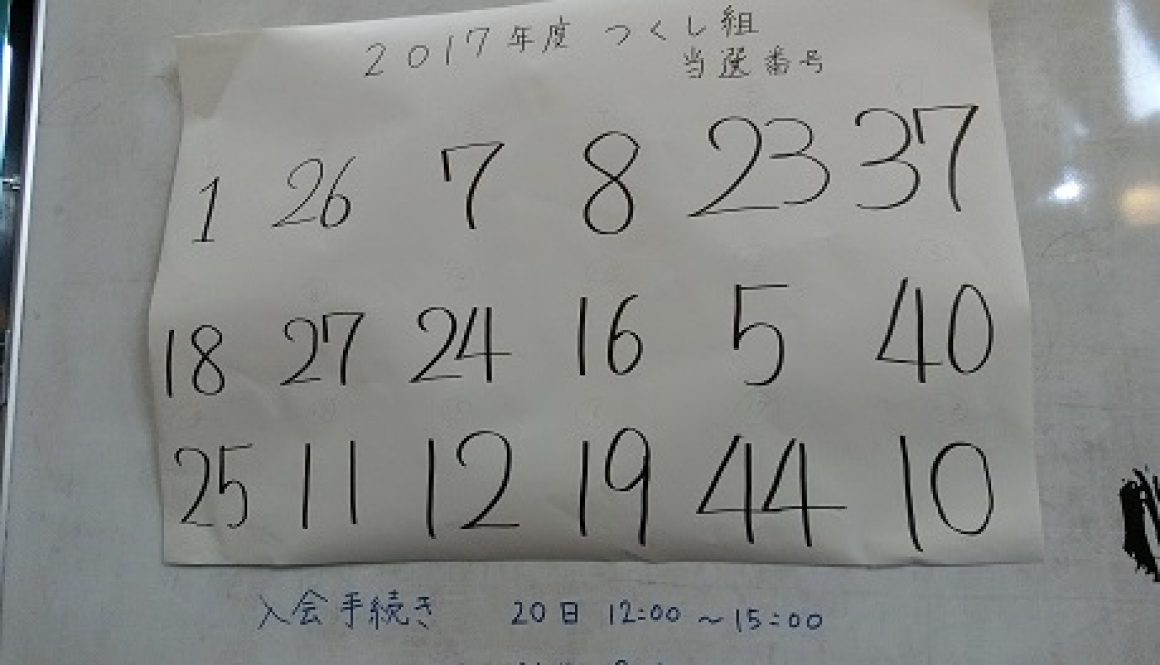 2017年度 つくし組
当選番号
1 26 7 8 23 37
18 27 24 16 5 40
25 11 12 19 44 10
入会手続き 20日 12:00～15:00